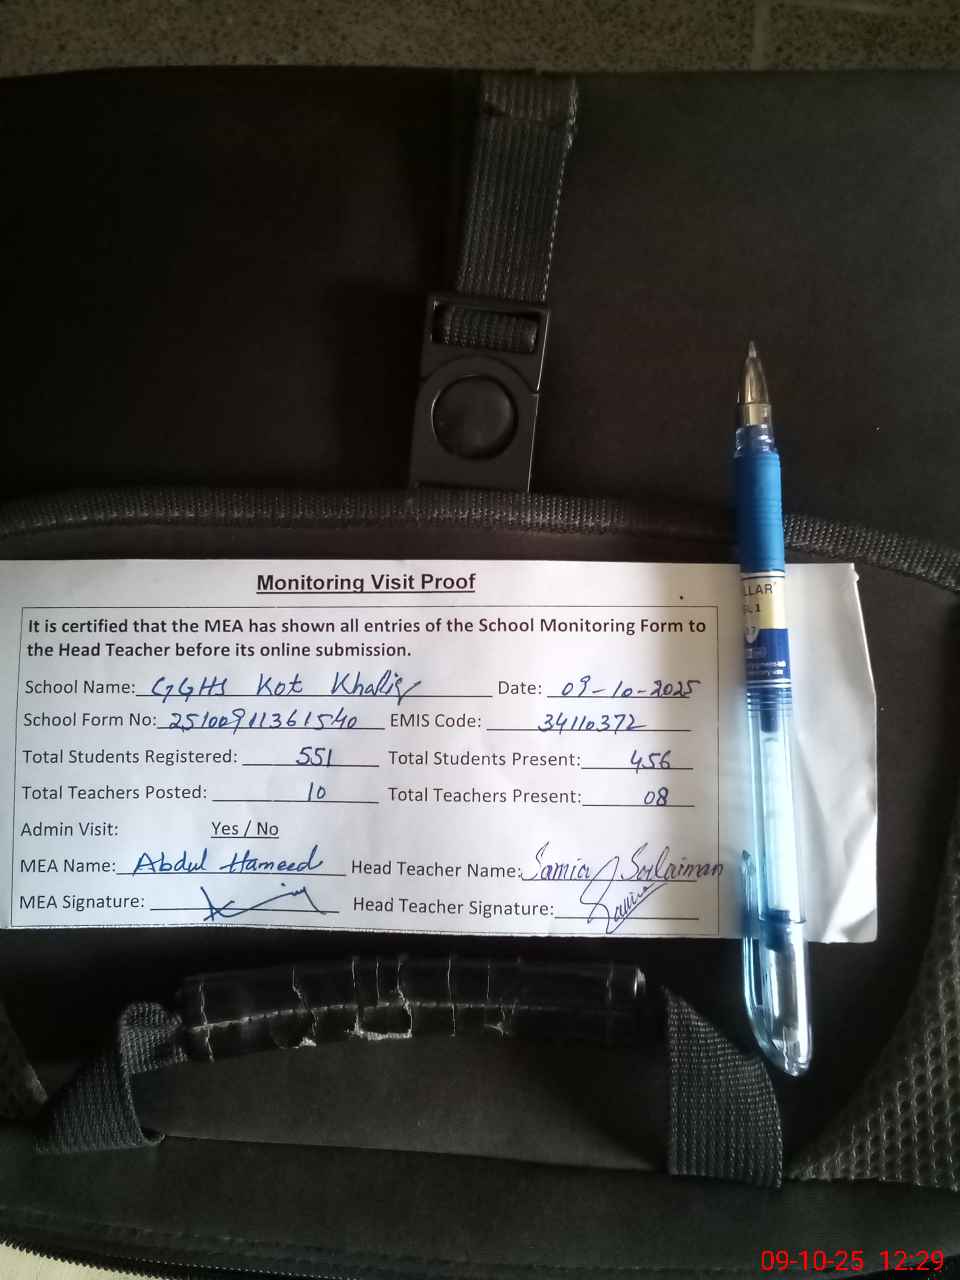 Monitoring Visit Proof
It is certified that the MEA has shown all entries of the School Monitoring Form to
the Head Teacher before its online submission.
School Name: GGHS Kot Khaliq Date: 09-10-2025
School Form No: 25100911361540 EMIS Code: 34110372
Total Students Registered: 551 Total Students Present: 456
Total Teachers Posted: 10 Total Teachers Present: 08
Admin Visit: Yes / No
MEA Name: Abdul Hameed Head Teacher Name: Samia Sulaiman
MEA Signature: Head Teacher Signature: Samia
LLAR
0.7
09-10-25 12:29